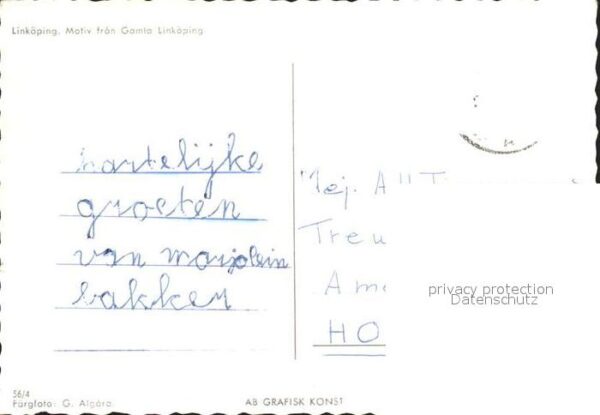 Linköping. Motiv från Gamla Linköping
hartelijke
groeten
van marjolein
bakker
Mej. A
Treu
Am
HO
privacy protection
Datenschutz
56/4
Färgfoto: G. Algård.
AB GRAFISK KONST